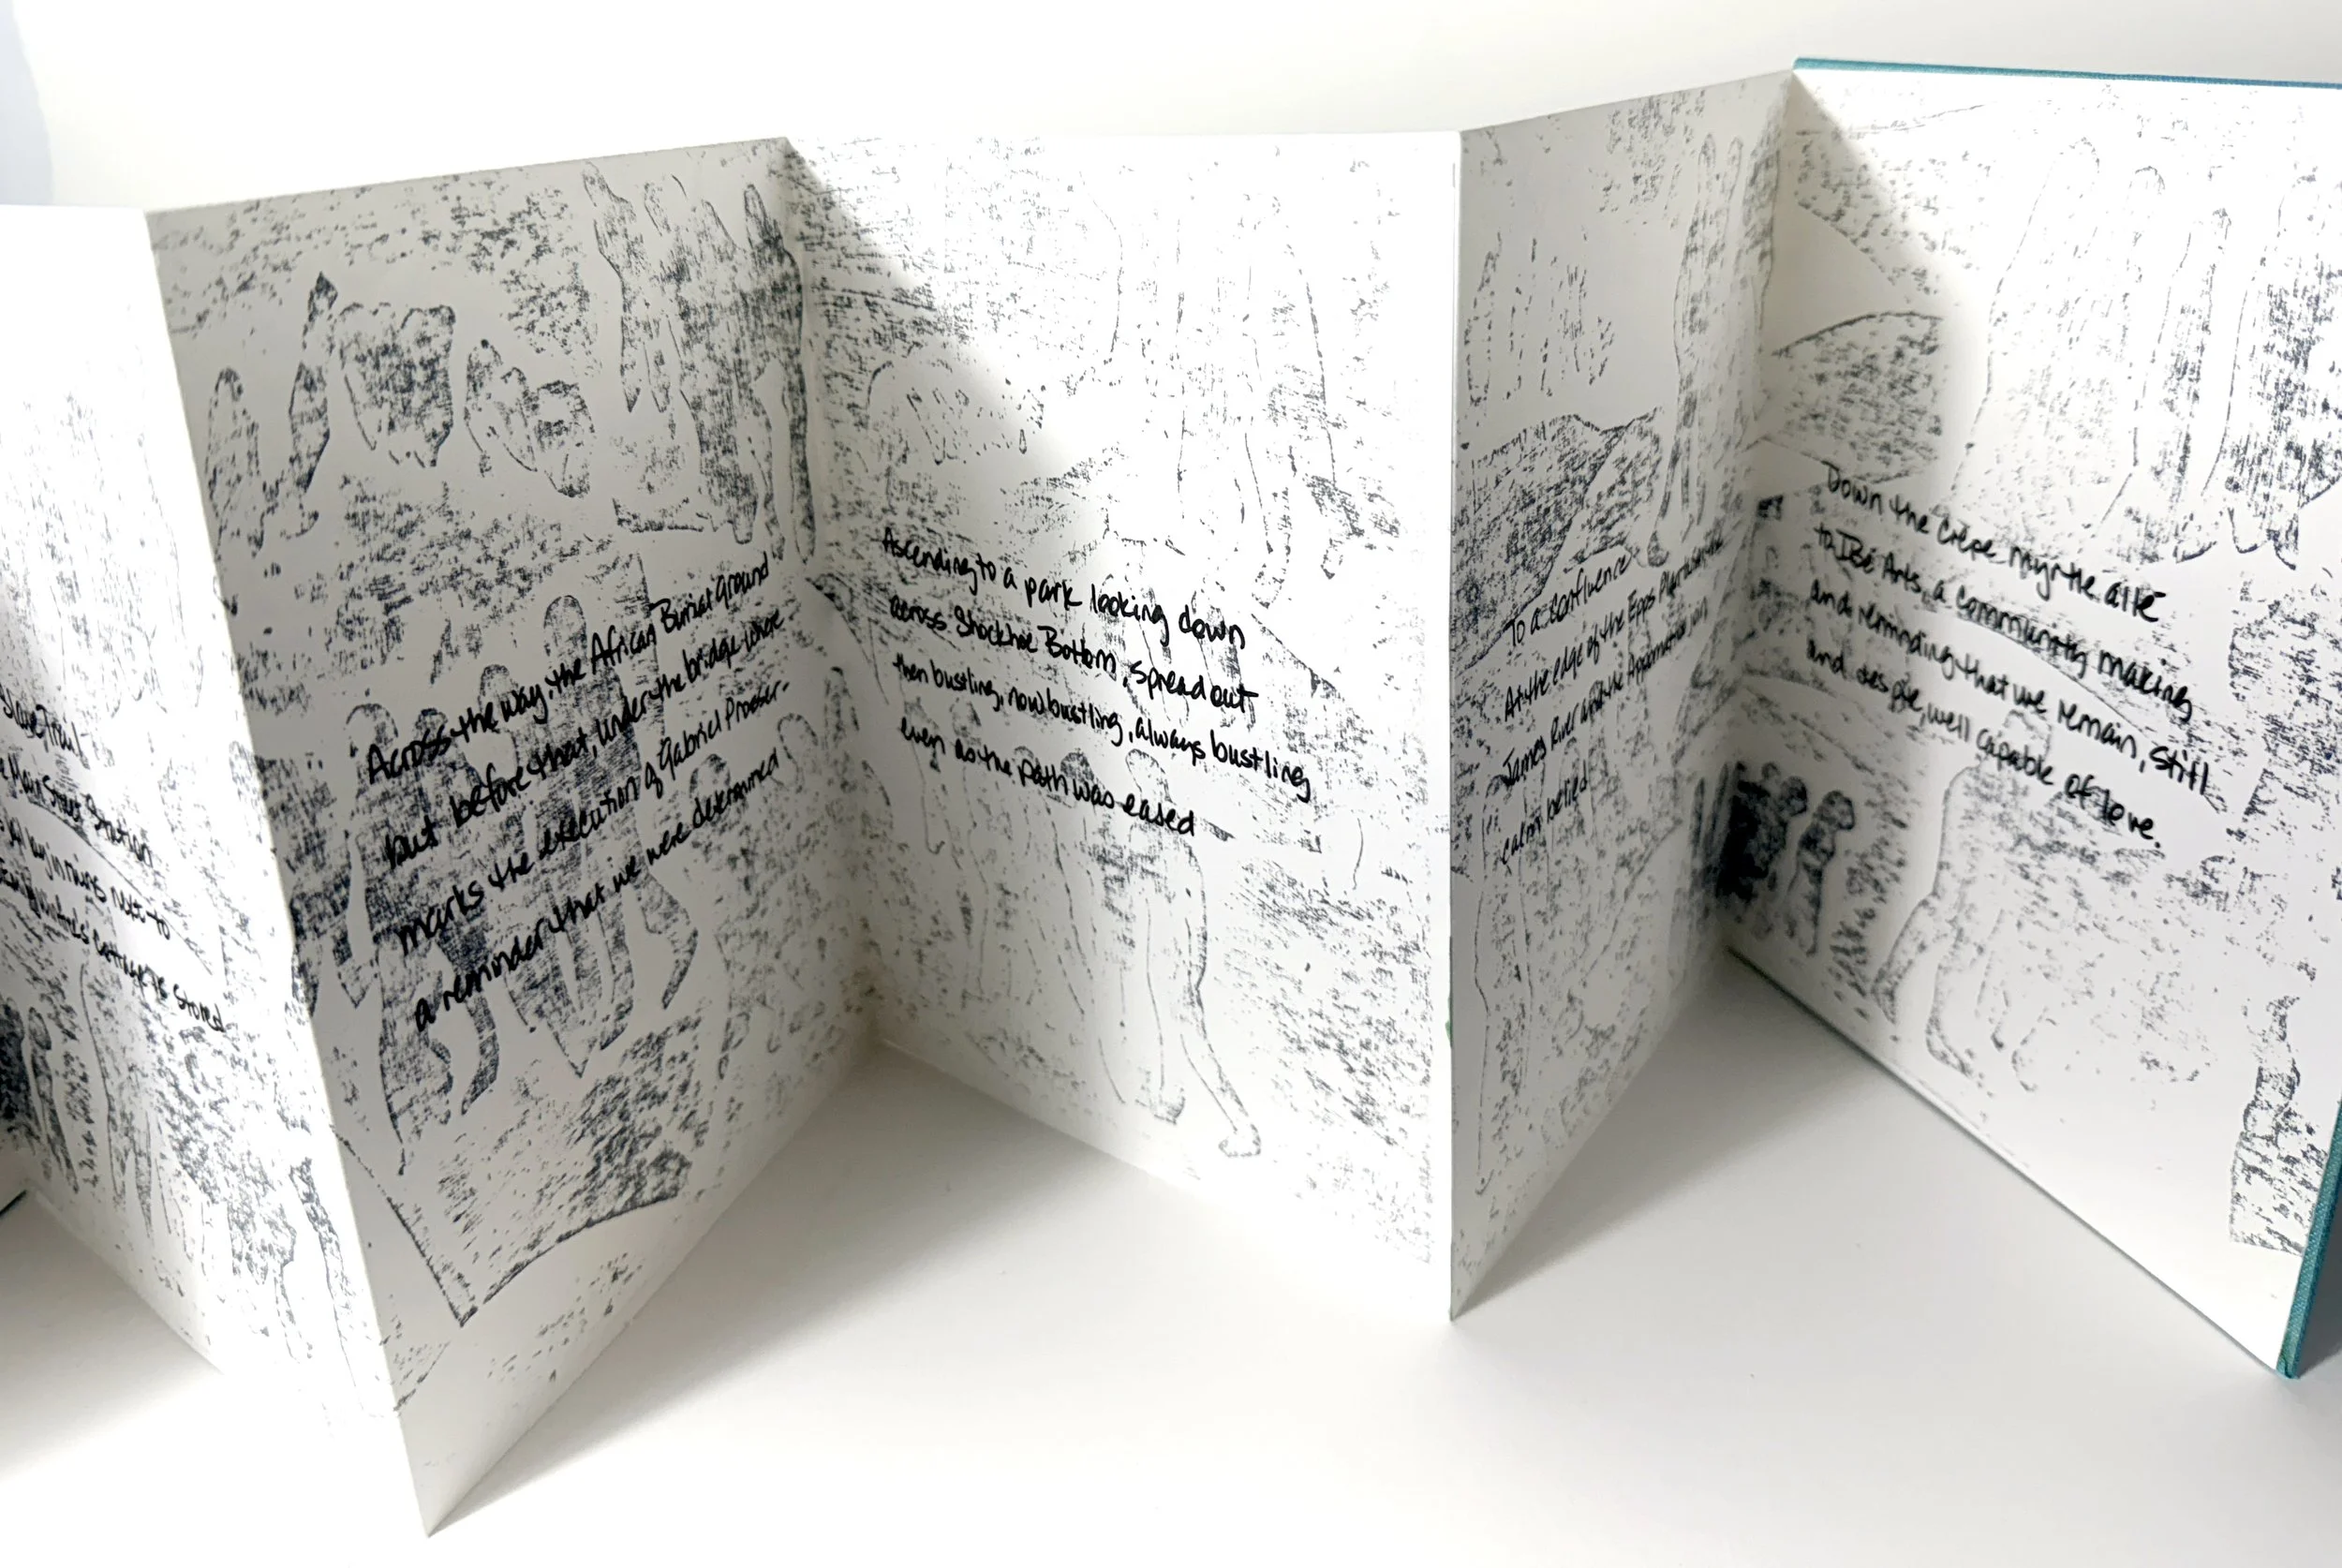 Slave Trail
Main Street Station
next to
is stored
Across the way, the African Burial Ground
but before that, under the bridge where
marks the execution of Gabriel Prosser-
a reminder that we were determined
Ascending to a park looking down
across Shockhoe Bottom, spread out
then bustling, now bustling, always bustling
even as the path was eased
To a confluence
At the edge of the Epps Plantation the
James River and the Appomattox
calm belied
Down the Crêpe myrtle allé
to Ibé Arts, a community making
and reminding that we remain, still
and despite, well capable of love.